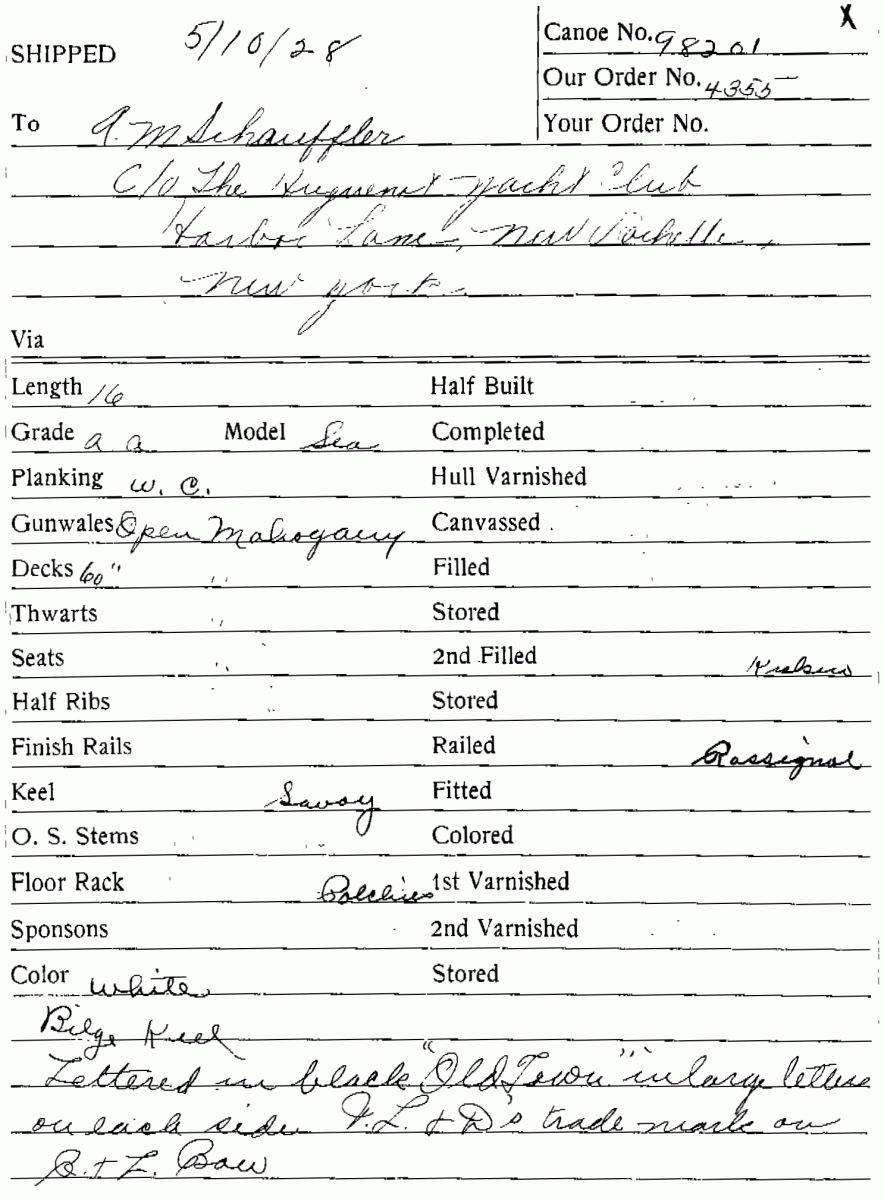 X
SHIPPED 5/10/28
Canoe No. 98201
Our Order No. 4355
To A. M Schauffler
Your Order No.
C/o The Huguenot Yacht Club
Harbor Lane, New Rochelle,
New York.
Via
Length 16 Half Built
Grade a a Model Sea Completed
Planking W. C. Hull Varnished
Gunwales Open Mahogany Canvassed
Decks 60" " Filled
Thwarts " Stored
Seats " 2nd Filled
Half Ribs Stored
Finish Rails Railed Rassignol
Keel Savoy Fitted
O. S. Stems Colored
Floor Rack Polchies 1st Varnished
Sponsons 2nd Varnished
Color White Stored
Bilge Keel
Lettered in black "Old Town" in large letters
on each side. I. L. + D's trade mark on
R. + L. Bow